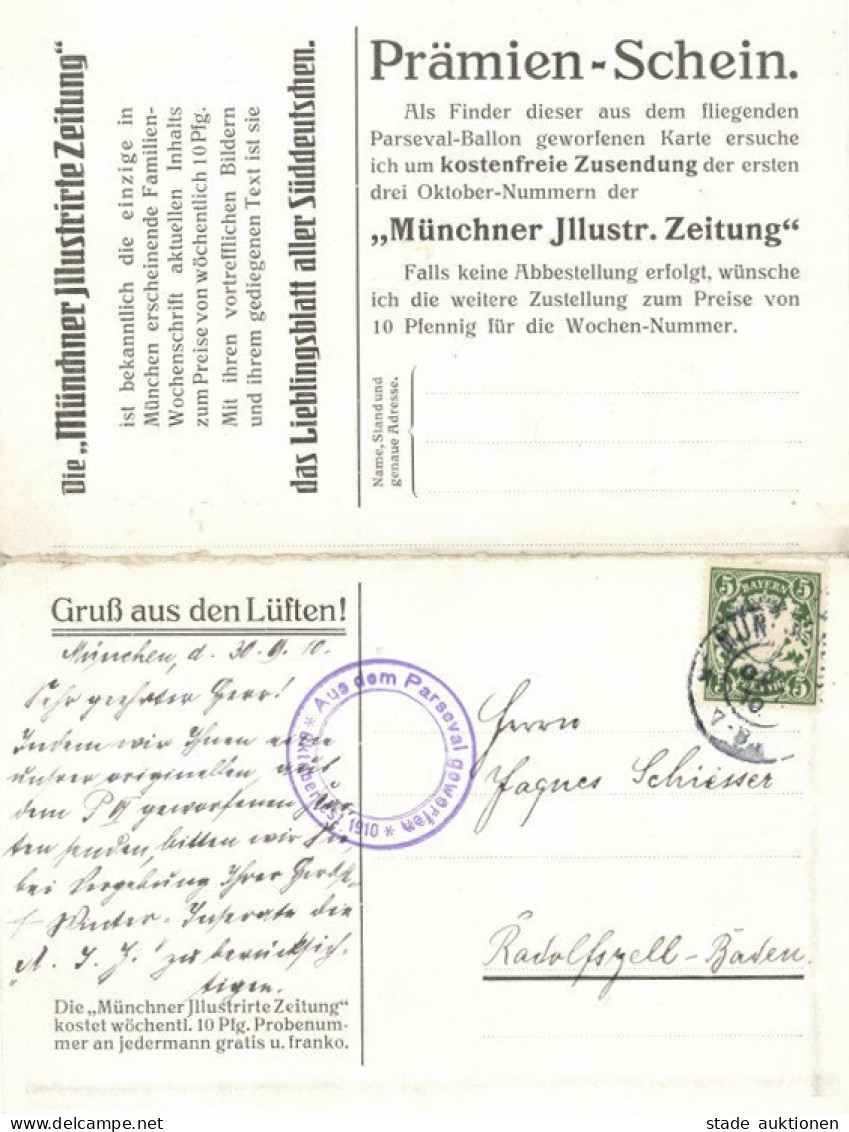 Die „Münchner Jllustrirte Zeitung“
ist bekanntlich die einzige in
München erscheinende Familien-
Wochenschrift aktuellen Inhalts
zum Preise von wöchentlich 10 Pfg.
Mit ihren vortrefflichen Bildern
und ihrem gediegenen Text ist sie
das Lieblingsblatt aller Süddeutschen.
Prämien-Schein.
Als Finder dieser aus dem fliegenden
Parseval-Ballon geworfenen Karte ersuche
ich um kostenfreie Zusendung der ersten
drei Oktober-Nummern der
„Münchner Jllustr. Zeitung“
Falls keine Abbestellung erfolgt, wünsche
ich die weitere Zustellung zum Preise von
10 Pfennig für die Wochen-Nummer.
Name, Stand und
genaue Adresse.
Gruß aus den Lüften!
München, d. 30.9.10.
Sehr geehrter Herr!
Indem wir Ihnen eine
unsrer originellen, aus
dem P VI geworfenen Kar-
ten senden, bitten wir Sie
bei Vergebung Ihrer Herbst-
+ Winter-Inserate die
„M. I. Z.“ zu berücksich-
tigen.
Die „Münchner Jllustrirte Zeitung“
kostet wöchentl. 10 Pfg. Probenum-
mer an jedermann gratis u. franko.
* Aus dem Parseval geworfen * Oktoberfest 1910
5 BAYERN 5
5 5
MÜN
7-8
Herrn
Jaques Schiesser
Radolfszell-Baden.
stade auktionen